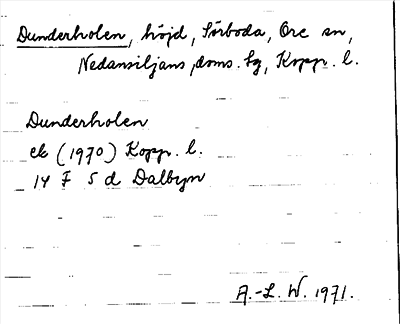 Dunderholen, höjd, Sörboda, Ore sn,
Nedansiljans doms. tg, Kopp. l.
Dunderholen
ek (1970) Kopp. l.
14 F 5 d Dalbyn
A.-L. W. 1971.